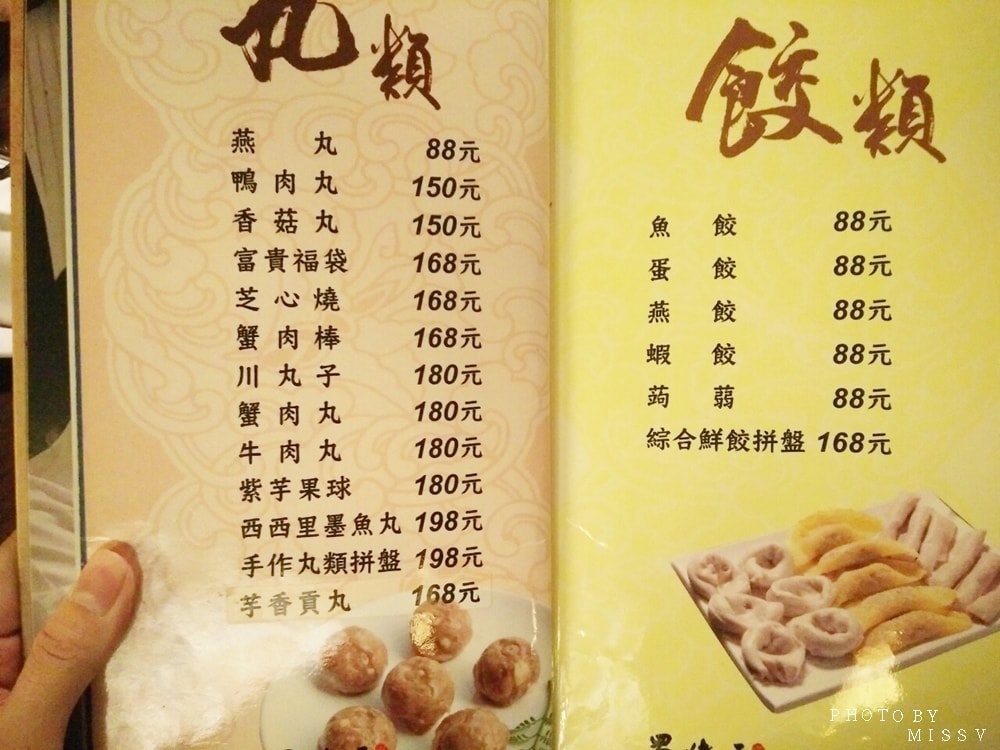 丸類
燕丸 88元
鴨肉丸 150元
香菇丸 150元
富貴福袋 168元
芝心燒 168元
蟹肉棒 168元
川丸子 180元
蟹肉丸 180元
牛肉丸 180元
紫芋果球 180元
西西里墨魚丸 198元
手作丸類拼盤 198元
芋香貢丸 168元
餃類
魚餃 88元
蛋餃 88元
燕餃 88元
蝦餃 88元
蒟蒻 88元
綜合鮮餃拼盤 168元
PHOTO BY
MISS V